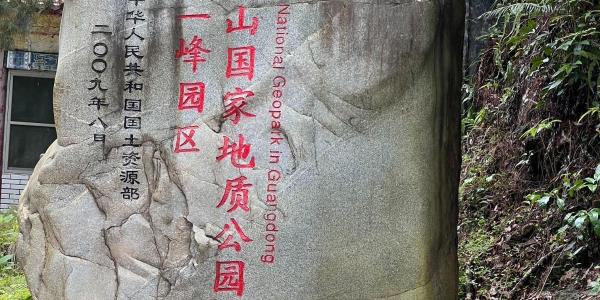 National Geopark in Guangdong
山国家地质公园
一峰园区
中华人民共和国国土资源部
二〇〇九年八月